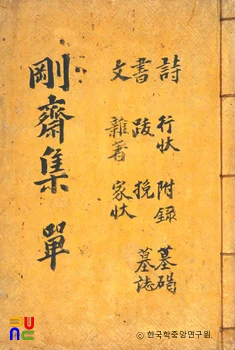 剛齋集 單
詩 行狀 附錄 墓碣
書 跋 挽 墓誌
文 雜著 家狀
ⓒ 한국학중앙연구원